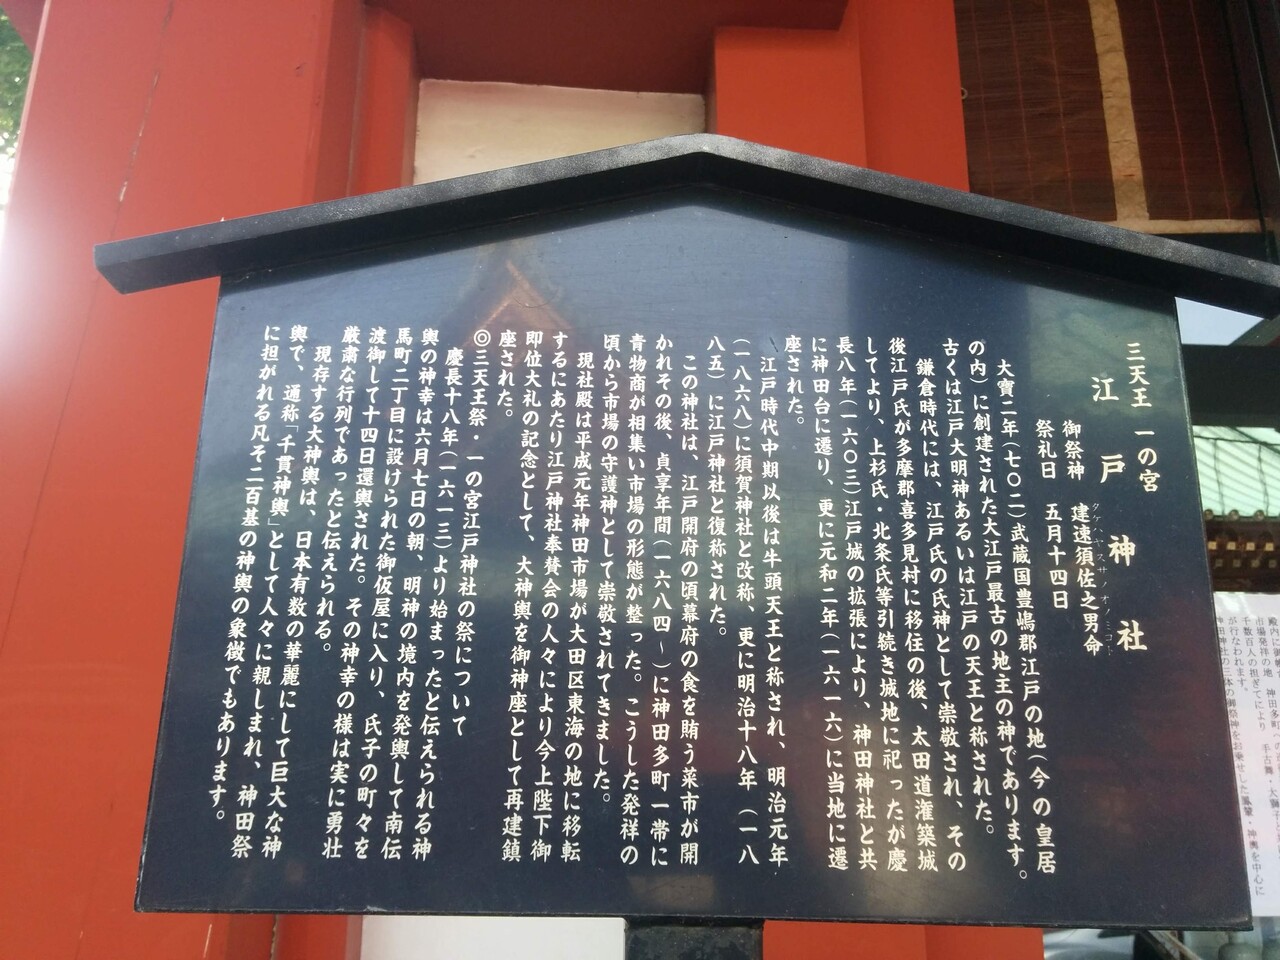 三天王 一の宮
江戸神社
御祭神 建速須佐之男命
タケハヤスサノオノミコト
祭礼日 五月十四日
大寶二年(七〇二)武蔵国豊嶋郡江戸の地(今の皇居
の内)に創建された大江戸最古の地主の神であります。
古くは江戸大明神あるいは江戸の天王と称された。
鎌倉時代には、江戸氏の氏神として崇敬され、その
後江戸氏が多摩郡喜多見村に移住の後、太田道潅築城
してより、上杉氏・北条氏等引続き城地に祀ったが慶
長八年(一六〇三)江戸城の拡張により、神田神社と共
に神田台に遷り、更に元和二年(一六一六)に当地に遷
座された。
江戸時代中期以後は牛頭天王と称され、明治元年
(一八六八)に須賀神社と改称、更に明治十八年(一八
八五)に江戸神社と復称された。
この神社は、江戸開府の頃幕府の食を賄う菜市が開
かれその後、貞享年間(一六八四~)に神田多町一帯に
青物商が相集い市場の形態が整った。こうした発祥の
頃から市場の守護神として崇敬されてきました。
現社殿は平成元年神田市場が大田区東海の地に移転
するにあたり江戸神社奉賛会の人々により今上陛下御
即位大礼の記念として、大神輿を御神座として再建鎮
座された。
◎三天王祭・一の宮江戸神社の祭について
慶長十八年(一六一三)より始まったと伝えられる神
輿の神幸は六月七日の朝、明神の境内を発輿して南伝
馬町二丁目に設けられた御仮屋に入り、氏子の町々を
渡御して十四日還輿された。その神幸の様は実に勇壮
厳粛な行列であったと伝えられる。
現存する大神輿は、日本有数の華麗にして巨大な神
輿で、通称「千貫神輿」として人々に親しまれ、神田祭
に担がれる凡そ二百基の神輿の象徴でもあります。
市場発祥の地 神田多町
千数百人の担ぎてにより 手古舞・大
が行なわれます。
神田神社の三体の御祭神をお乗せした鳳輦・神輿を中心に